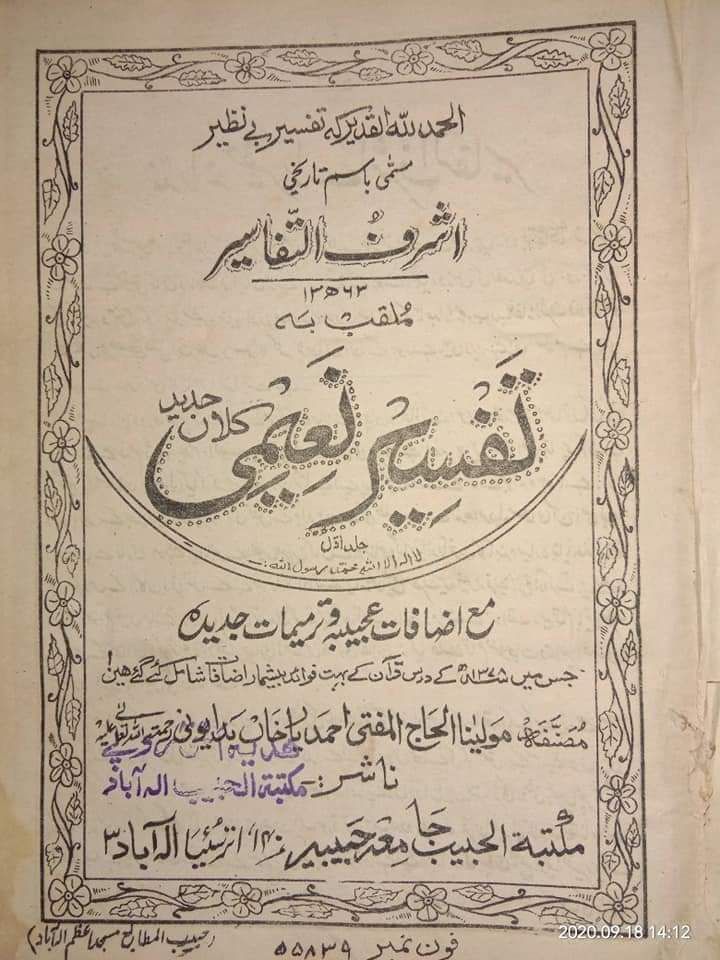 الحمد للہ القدیر کہ تفسیر بے نظیر
مسمّٰی باسم تاریخی
اشرف التّفاسیر
۱۳ھ۶۳
مُلقب بہ
تفسیر نعیمی
کلان جدید
جلد اوّل
لا الہ الا اللہ محمد رسول اللہ
مع اضافات عجیبہ و ترمیمات جدیدہ
جس میں ۱۳۷۵ھ کے درس قرآن کے بہت فوائد بیشمار اضافات شامل کئے گئے ھیں!
مُصنّفہ مولینا الحاج المفتی احمد یار خاں بدایونی رحمۃ اللہ تعالیٰ علیہ
ناشر:۔
مکتبۃ الحبیب الہ آباد
مکتبۃ الحبیب جامعہ حبیبیہ، ۱۴۰، اترسُئیا الہ آباد ۳
فون نمبر ۵۵۸۳۹
(حبیب المطابع مسجد اعظم الہ آباد)
2020.09.18 14:12